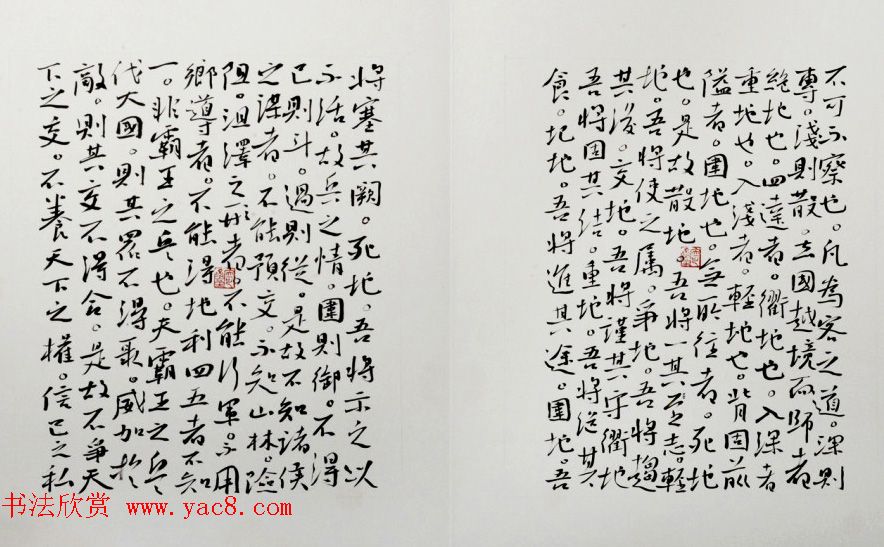 不可不察也。凡為客之道。深則
專。淺則散。去國越境而師者
絕地也。四達者。衢地也。入深者
重地也。入淺者。輕地也。背固前
隘者。圍地也。無所往者。死地
也。是故散地。吾將一其志。輕
地。吾將使之属。爭地。吾將趨
其後。交地。吾將謹其守。衢地
吾將固其結。重地。吾將其
食。圮地。吾將進其途。圍地。吾
將塞其闕。死地。吾將示之以
不活。故兵之情。圍則御。不得
已則斗。過則從。是故不知諸侯
之謀者。不能預交。不知山林。險
阻。沮澤之形者。不能行軍。不用
鄉導者。不能得地利四五者不知
一。非霸王之兵也。夫霸王之兵
伐大國。則其眾不得聚。威加於
敵。則其交不得合。是故不爭天
下之交。不養天下之權。信己之私
书法欣赏 www.yac8.com